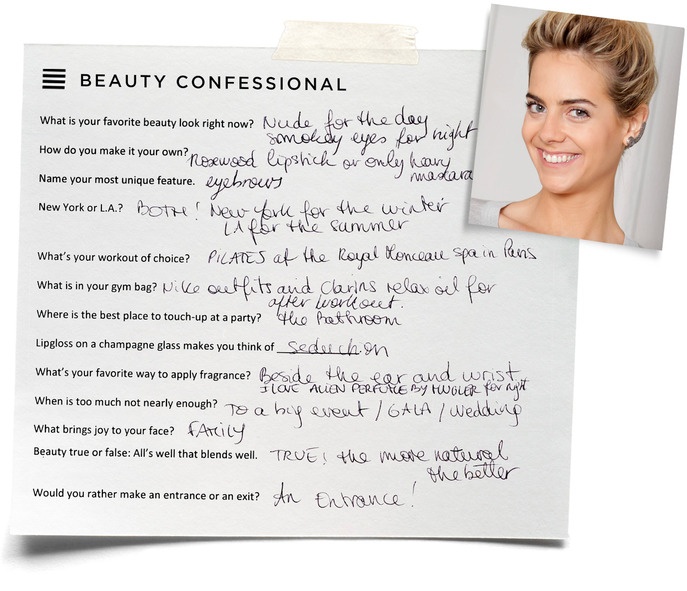 BEAUTY CONFESSIONAL
What is your favorite beauty look right now? Nude for the day
smokey eyes for night
How do you make it your own? Rosewood lipstick or only heavy
mascara
Name your most unique feature. eyebrows
New York or L.A.? BOTH! New York for the winter
LA for the summer
What's your workout of choice? PILATES at the Royal Monceau spa in Paris
What is in your gym bag? Nike outfits and Clarins relax oil for
after workout.
Where is the best place to touch-up at a party? the Bathroom
Lipgloss on a champagne glass makes you think of seduction
What's your favorite way to apply fragrance? Beside the ear and wrist.
I LOVE ALIEN PERFUME BY MUGLER for night
When is too much not nearly enough? To a big event / GALA / wedding
What brings joy to your face? FAMILY
Beauty true or false: All's well that blends well. TRUE! the more natural
the better
Would you rather make an entrance or an exit? An Entrance!